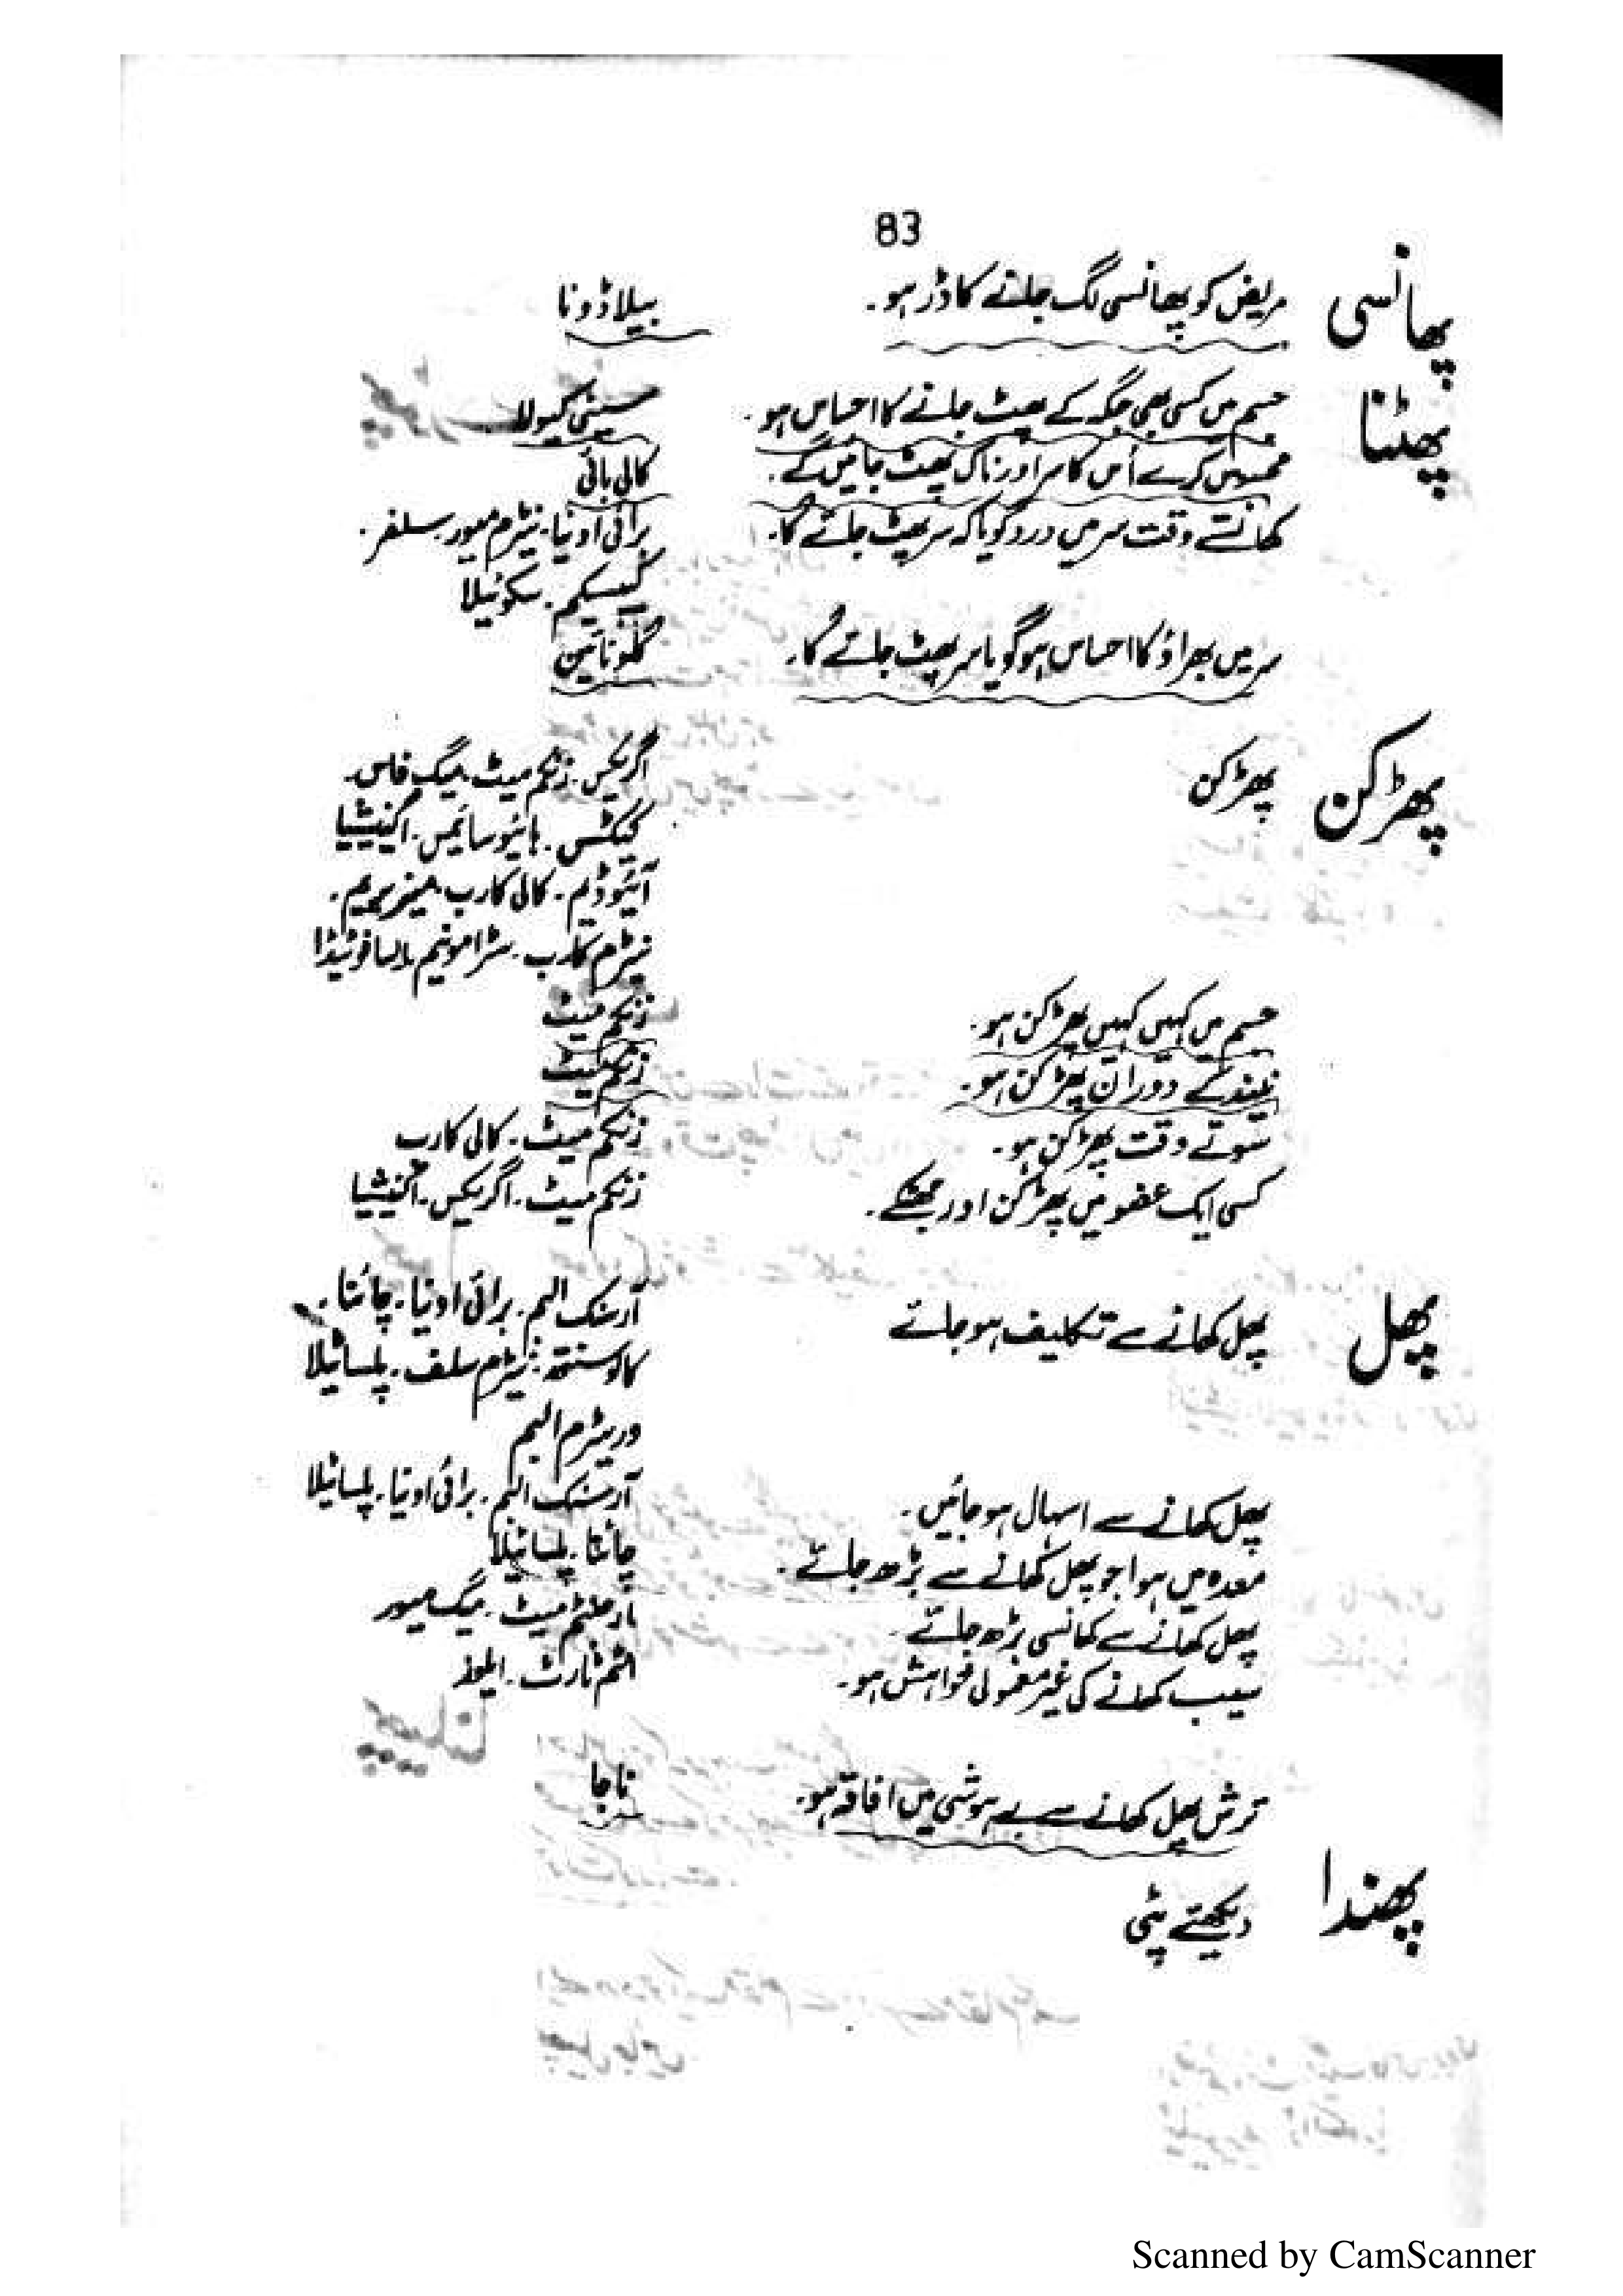 83
پھانسی مریض کو پھانسی لگ جانے کا ڈر ہو۔ بیلاڈونا
پھٹنا جسم میں کسی بھی جگہ کے پھٹ جانے کا احساس ہو۔
محسوس کرے اُس کا سر اور ناک پھٹ جائیں گے۔ کالی بائی
کھانستے وقت سر میں درد گویا کہ سر پھٹ جائے گا۔ برائی اونیا۔ نیٹرم میور۔ سلفر۔
کیپسیکم۔ سکوئیلا
سر میں بھراؤ کا احساس ہو گویا سر پھٹ جائے گا۔ گلونائین
پھڑکن پھڑکن اگریکس۔ زنکم میٹ۔ میگ فاس۔
کیکٹس۔ ہائیوسائمس۔ اگنیشیا
آئیوڈیم۔ کالی کارب۔ میزیریم۔
نیٹرم کارب۔ سٹرامونیم۔ ایسافوئیڈا
جسم میں کہیں کہیں پھڑکن ہو۔ زنکم میٹ
نیند کے دوران پھڑکن ہو۔ زنکم میٹ
سوتے وقت پھڑکن ہو۔ زنکم میٹ۔ کالی کارب
کسی ایک عضو میں پھڑکن اور جھٹکے۔ زنکم میٹ۔ اگریکس۔ اگنیشیا
پھل پھل کھانے سے تکلیف ہو جائے آرسنک البم۔ برائی اونیا۔ چائنا۔
کالوسنتھ۔ نیٹرم سلف۔ پلساٹیلا
وریٹرم البم
پھل کھانے سے اسہال ہو جائیں۔ آرسنک البم۔ برائی اونیا۔ پلساٹیلا
معدہ میں ہوا جو پھل کھانے سے بڑھ جائے۔ چائنا۔ پلساٹیلا
پھل کھانے سے کھانسی بڑھ جائے۔ ارجنٹم میٹ۔ میگ میور
سیب کھانے کی غیر معمولی خواہش ہو۔ انٹم ٹارٹ۔ ایلوز
ترش پھل کھانے سے بے ہوشی میں افاقہ ہو۔ ناجا
پھندا دیکھئے پٹی
Scanned by CamScanner